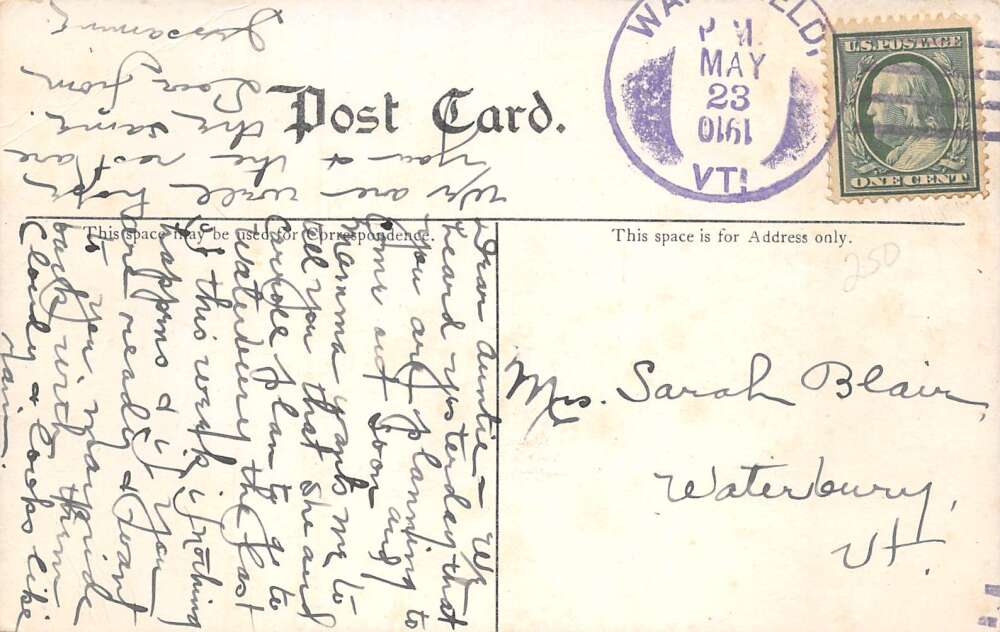 Post Card.
WA FIELD,
P.M.
MAY
23
1910
VT.
U.S. POSTAGE
ONE CENT
This space may be used for Correspondence.
This space is for Address only.
250
Mrs. Sarah Blair,
Waterbury,
Vt.
Dear Auntie - We
heard yesterday that
you are planning to
come out soon and
Mamma wants me to
tell you that she and
Carroll plan to go to
Waterbury the last
of this week, if nothing
happens & if you
are ready & want
to you may ride
back with them
Cloudy & looks like
rain.
We are well hope
you & the rest are
the same.
Love from